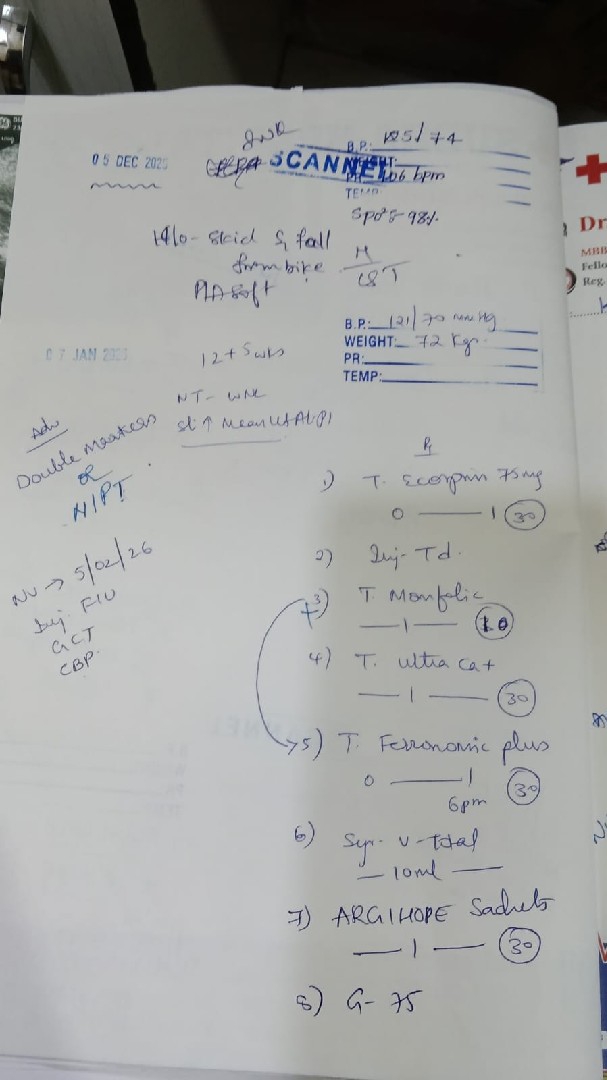 05 DEC 202
SCANNE
B.P: 125/74
106 bpm
TEMP
SpO2 98%
H/o - skid & fall
from bike
P/A Soft
B.P: 121/70 mmHg
WEIGHT: 72 Kgs
PR:
TEMP:
07 JAN 202
12 + 5 wks
NT - WNL
sl ↑ Mean Ut A PI
Adv
Double Markers
or
NIPT
NV → 5/02/26
Inj.
GCT
CBP.
1) T. Ecosprin 75mg
0 — 1 30
2) Inj - Td.
3) T. Monfolic
— 1 —
4) T. ultra ca +
— 1 — 30
5) T. Ferronomic plus
0 — 1 30
6pm
6) Syr. V-Total
— 10ml —
7) ARGIHOPE Sachets
— 1 — 30
8) G - 75
Dr
MBB
Fello
Reg.